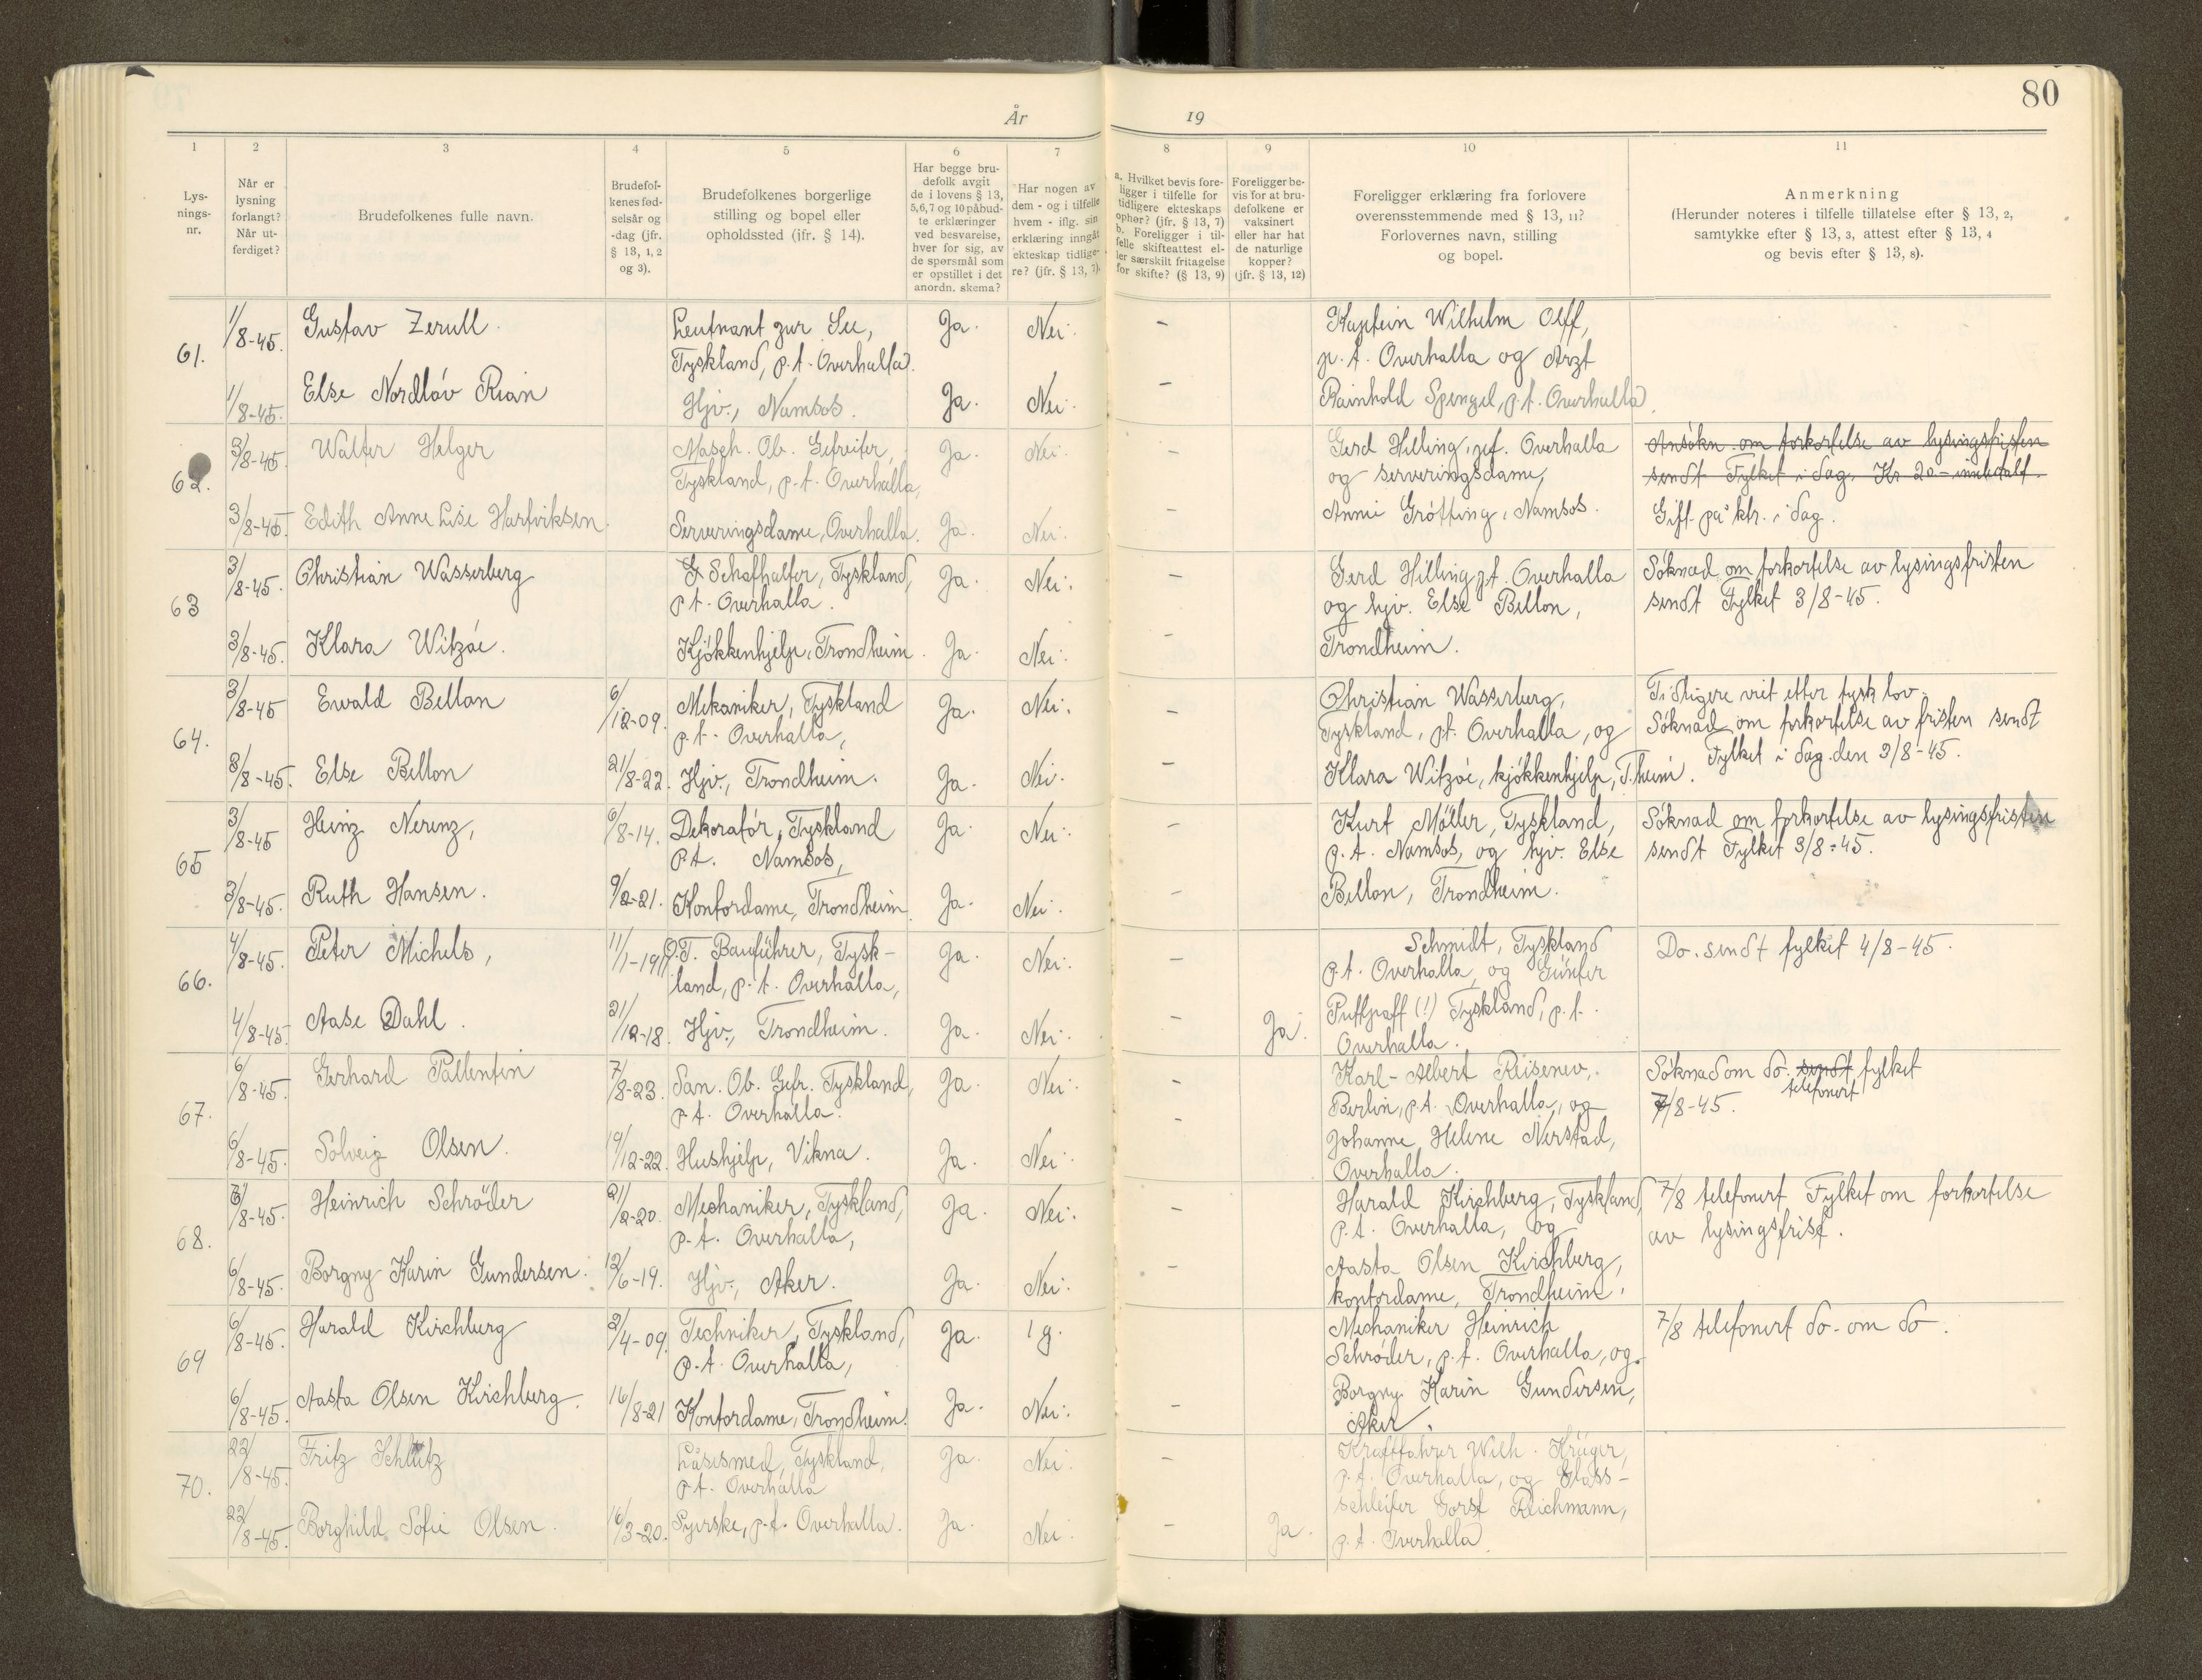 80
År 19
1 2 3 4 5 6 7 8 9 10 11
Lys-
nings-
nr.
Når er
lysning
forlangt?
Når ut-
ferdiget?
Brudefolkenes fulle navn.
Brudefol-
kenes fød-
selsår og
-dag (jfr.
§ 13, 1, 2
og 3).
Brudefolkenes borgerlige
stilling og bopel eller
opholdssted (jfr. § 14).
Har begge bru-
defolk avgit
de i lovens § 13,
5,6,7 og 10 påbud-
te erklæringer
ved besvarelse,
hver for sig, av
de spørsmål som
er opstillet i det
anordn. skema?
Har nogen av
dem - og i tilfelle
hvem - iflg. sin
erklæring inngåt
ekteskap tidlige-
re? (jfr. § 13, 7).
a. Hvilket bevis fore-
ligger i tilfelle for
tidligere ekteskaps
ophør? (jfr. § 13, 7)
b. Foreligger i til-
felle skifteattest el-
ler særskilt fritagelse
for skifte? (§ 13, 9)
Foreligger be-
vis for at bru-
defolkene er
vaksinert
eller har hat
de naturlige
kopper?
(jfr. § 13, 12)
Foreligger erklæring fra forlovere
overensstemmende med § 13, 11?
Forlovernes navn, stilling
og bopel.
Anmerkning
(Herunder noteres i tilfelle tillatelse efter § 13, 2,
samtykke efter § 13, 3, attest efter § 13, 4
og bevis efter § 13, 8).
61.
1/8-45. Gustav Zerull. Leutnant zur See, Ja. Nei. -
Tyskland, p.t. Overhalla.
1/8-45. Else Nordløv Rian Hjv., Namsos. Ja. Nei. -
Kaptein Wilhelm Olff,
p.t. Overhalla og Arzt
Rainhold Spengel, p.t. Overhalla.
62.
3/8-45. Walter Helger Masch. Ob. Gefreiter, Ja. Nei. -
Tyskland, p.t. Overhalla,
3/8-45. Edith Anne Lise Hartviksen. Serveringsdame, Overhalla. Ja. Nei. -
Gerd Hilling, pt. Overhalla
og serveringsdame,
Annie Grøtting, Namsos.
Ansøkn. om forkortelse av lysingsfristen
sendt Fylket i dag. Kr 20.- innbetalt.
Gift på ktr. i dag.
63
3/8-45. Christian Wasserberg Schafhalter, Tyskland, Ja. Nei. -
pt. Overhalla.
3/8-45. Klara Witzøe. Kjøkkenhjelp, Trondheim. Ja. Nei. -
Gerd Hilling pt. Overhalla
og hjv. Else Bellon,
Trondheim.
Søknad om forkortelse av lysingsfristen
sendt Fylket 3/8-45.
64.
3/8-45 Ewald Bellon 6/12-09. Mekaniker, Tyskland Ja. Nei. -
p.t. Overhalla,
3/8-45. Else Bellon 21/8-22. Hjv., Trondheim. Ja. Nei. -
Christian Wasserberg,
Tyskland, pt. Overhalla, og
Klara Witzøe, kjøkkenhjelp, T.heim.
Tidligere viet etter tysk lov.
Søknad om forkortelse av fristen sendt
Fylket i dag den 3/8-45.
65
3/8-45 Heinz Nerenz, 6/8-14. Dekoratør, Tyskland Ja. Nei. -
p.t. Namsos,
3/8-45. Ruth Hansen. 9/2-21. Kontordame, Trondheim. Ja. Nei. -
Kurt Møller, Tyskland,
p.t. Namsos, og hjv. Else
Bellon, Trondheim.
Søknad om forkortelse av lysingsfristen
sendt Fylket 3/8-45.
66.
4/8-45. Peter Michels, 11/1-1911 O.T. Bauführer, Tysk- Ja. Nei. -
land, p.t. Overhalla,
4/8-45 Aase Dahl. 21/12-18. Hjv., Trondheim. Ja. Nei. - Ja.
Schmidt, Tyskland
p.t. Overhalla, og Günter
Puffpaff (!) Tyskland, p.t.
Overhalla.
Do. sendt fylket 4/8-45.
67.
6/8-45. Gerhard Pallentin 7/8-23. San. Ob. Gefr. Tyskland, Ja. Nei. -
p.t. Overhalla.
6/8-45. Solveig Olsen. 19/12-22. Hushjelp, Vikna. Ja. Nei. -
Karl-Albert
Berlin, p.t. Overhalla, og
Johanne Helene Nerstad,
Overhalla.
Søknad om do. sendt fylket
telefonert
7/8-45.
68.
6/8-45. Heinrich Schrøder 21/2-20. Mechaniker, Tyskland, Ja. Nei. -
p.t. Overhalla,
6/8-45. Borgny Karin Gundersen. 12/6-19. Hjv., Aker. Ja. Nei. -
Harald Kirchberg, Tyskland,
p.t. Overhalla, og
Aasta Olsen Kirchberg,
kontordame, Trondheim.
7/8 telefonert Fylket om forkortelse
av lysingsfrist.
69
6/8-45. Harald Kirchberg 2/4-09. Techniker, Tyskland, Ja. 1 g.
p.t. Overhalla,
6/8-45. Aasta Olsen Kirchberg. 16/8-21 Kontordame, Trondheim. Ja. Nei. -
Mechaniker Heinrich
Schrøder, p.t. Overhalla, og
Borgny Karin Gundersen,
Aker.
7/8 telefonert do. om do.
70.
22/8-45. Fritz Schlütz Låsesmed, Tyskland, Ja. Nei. -
p.t. Overhalla
22/8-45. Borghild Sofie Olsen. 16/3-20. Syerske, p.t. Overhalla. Ja. Nei. - Ja.
Kraftfahrer Wilh. Krüger,
p.t. Overhalla, og Glass-
schleifer Gorst Reichmann,
p.t. Overhalla.